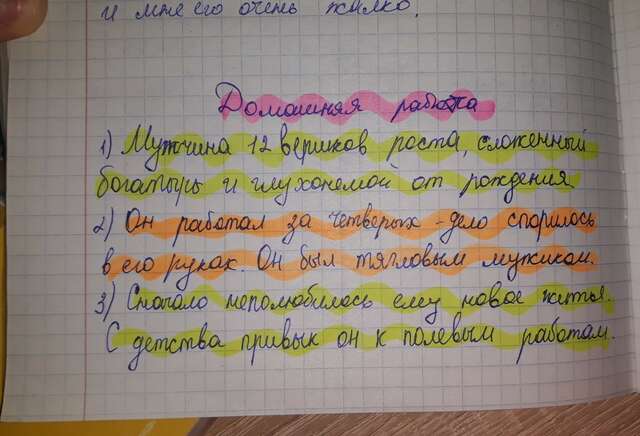 и мне его очень жалко.
Домашняя работа
1) Мужчина 12 вершков роста, сложенный
богатырь и глухонемой от рождения
2) Он работал за четверых - дело спорилось
в его руках. Он был тягловым мужиком.
3) Сначало неполюбилось ему новое житьё.
С детства привык он к полевым работам.